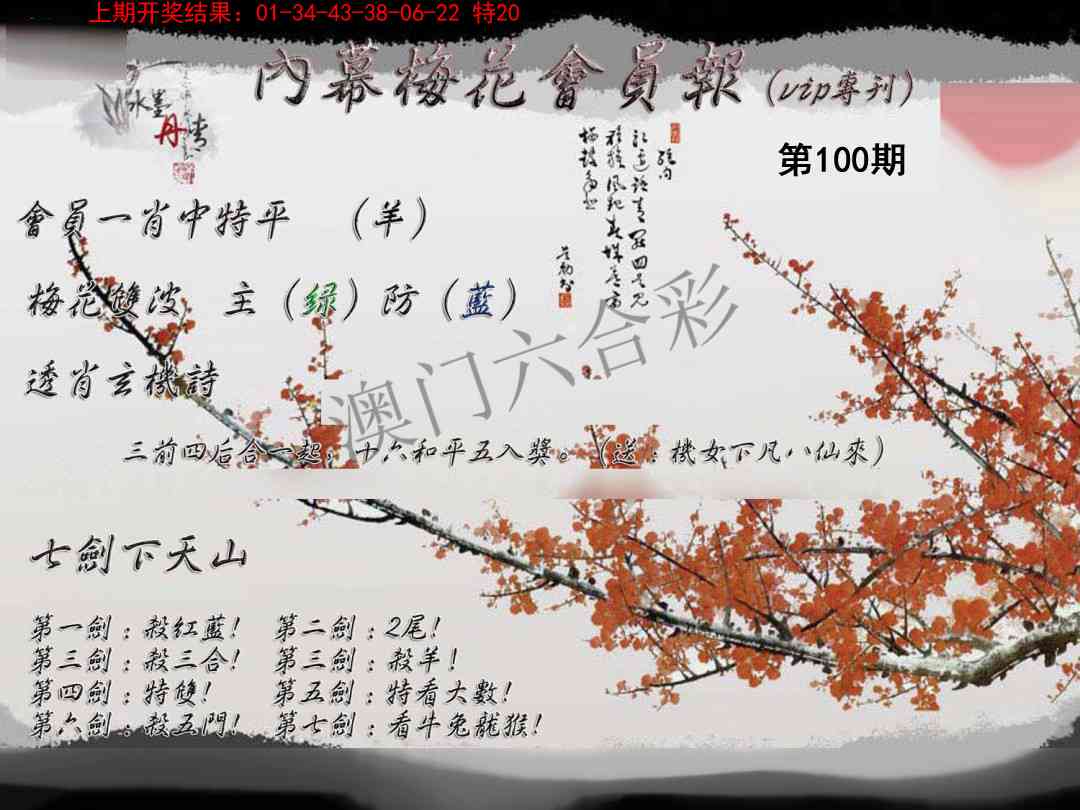 上期开奖结果：01-34-43-38-06-22 特20
內幕梅花會員報（vip專刊）
水墨
丹青
第100期
會員一肖中特平 （羊）
梅花雙波 主（绿）防（藍）
透肖玄機詩
澳门六合彩
三前四后合一起，十六和平五入獎。（送：機女下凡八仙來）
七劍下天山
第一劍：殺紅藍！ 第二劍：2尾！
第三劍：殺三合！ 第三劍：殺羊！
第四劍：特雙！ 第五劍：特看大數！
第六劍：殺五門！ 第七劍：看牛兔龍猴！